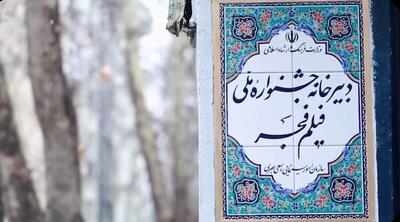 وزارت فرهنگ و ارشاد اسلامی
دبیرخانه جشنواره ملی
فیلم فجر
سازمان امور سینمایی و سمعی بصری